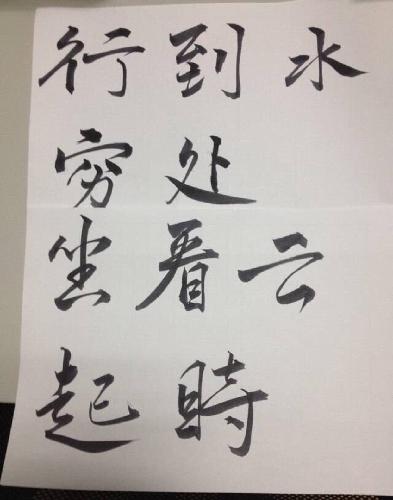 行到水
穷处
坐看云
起時